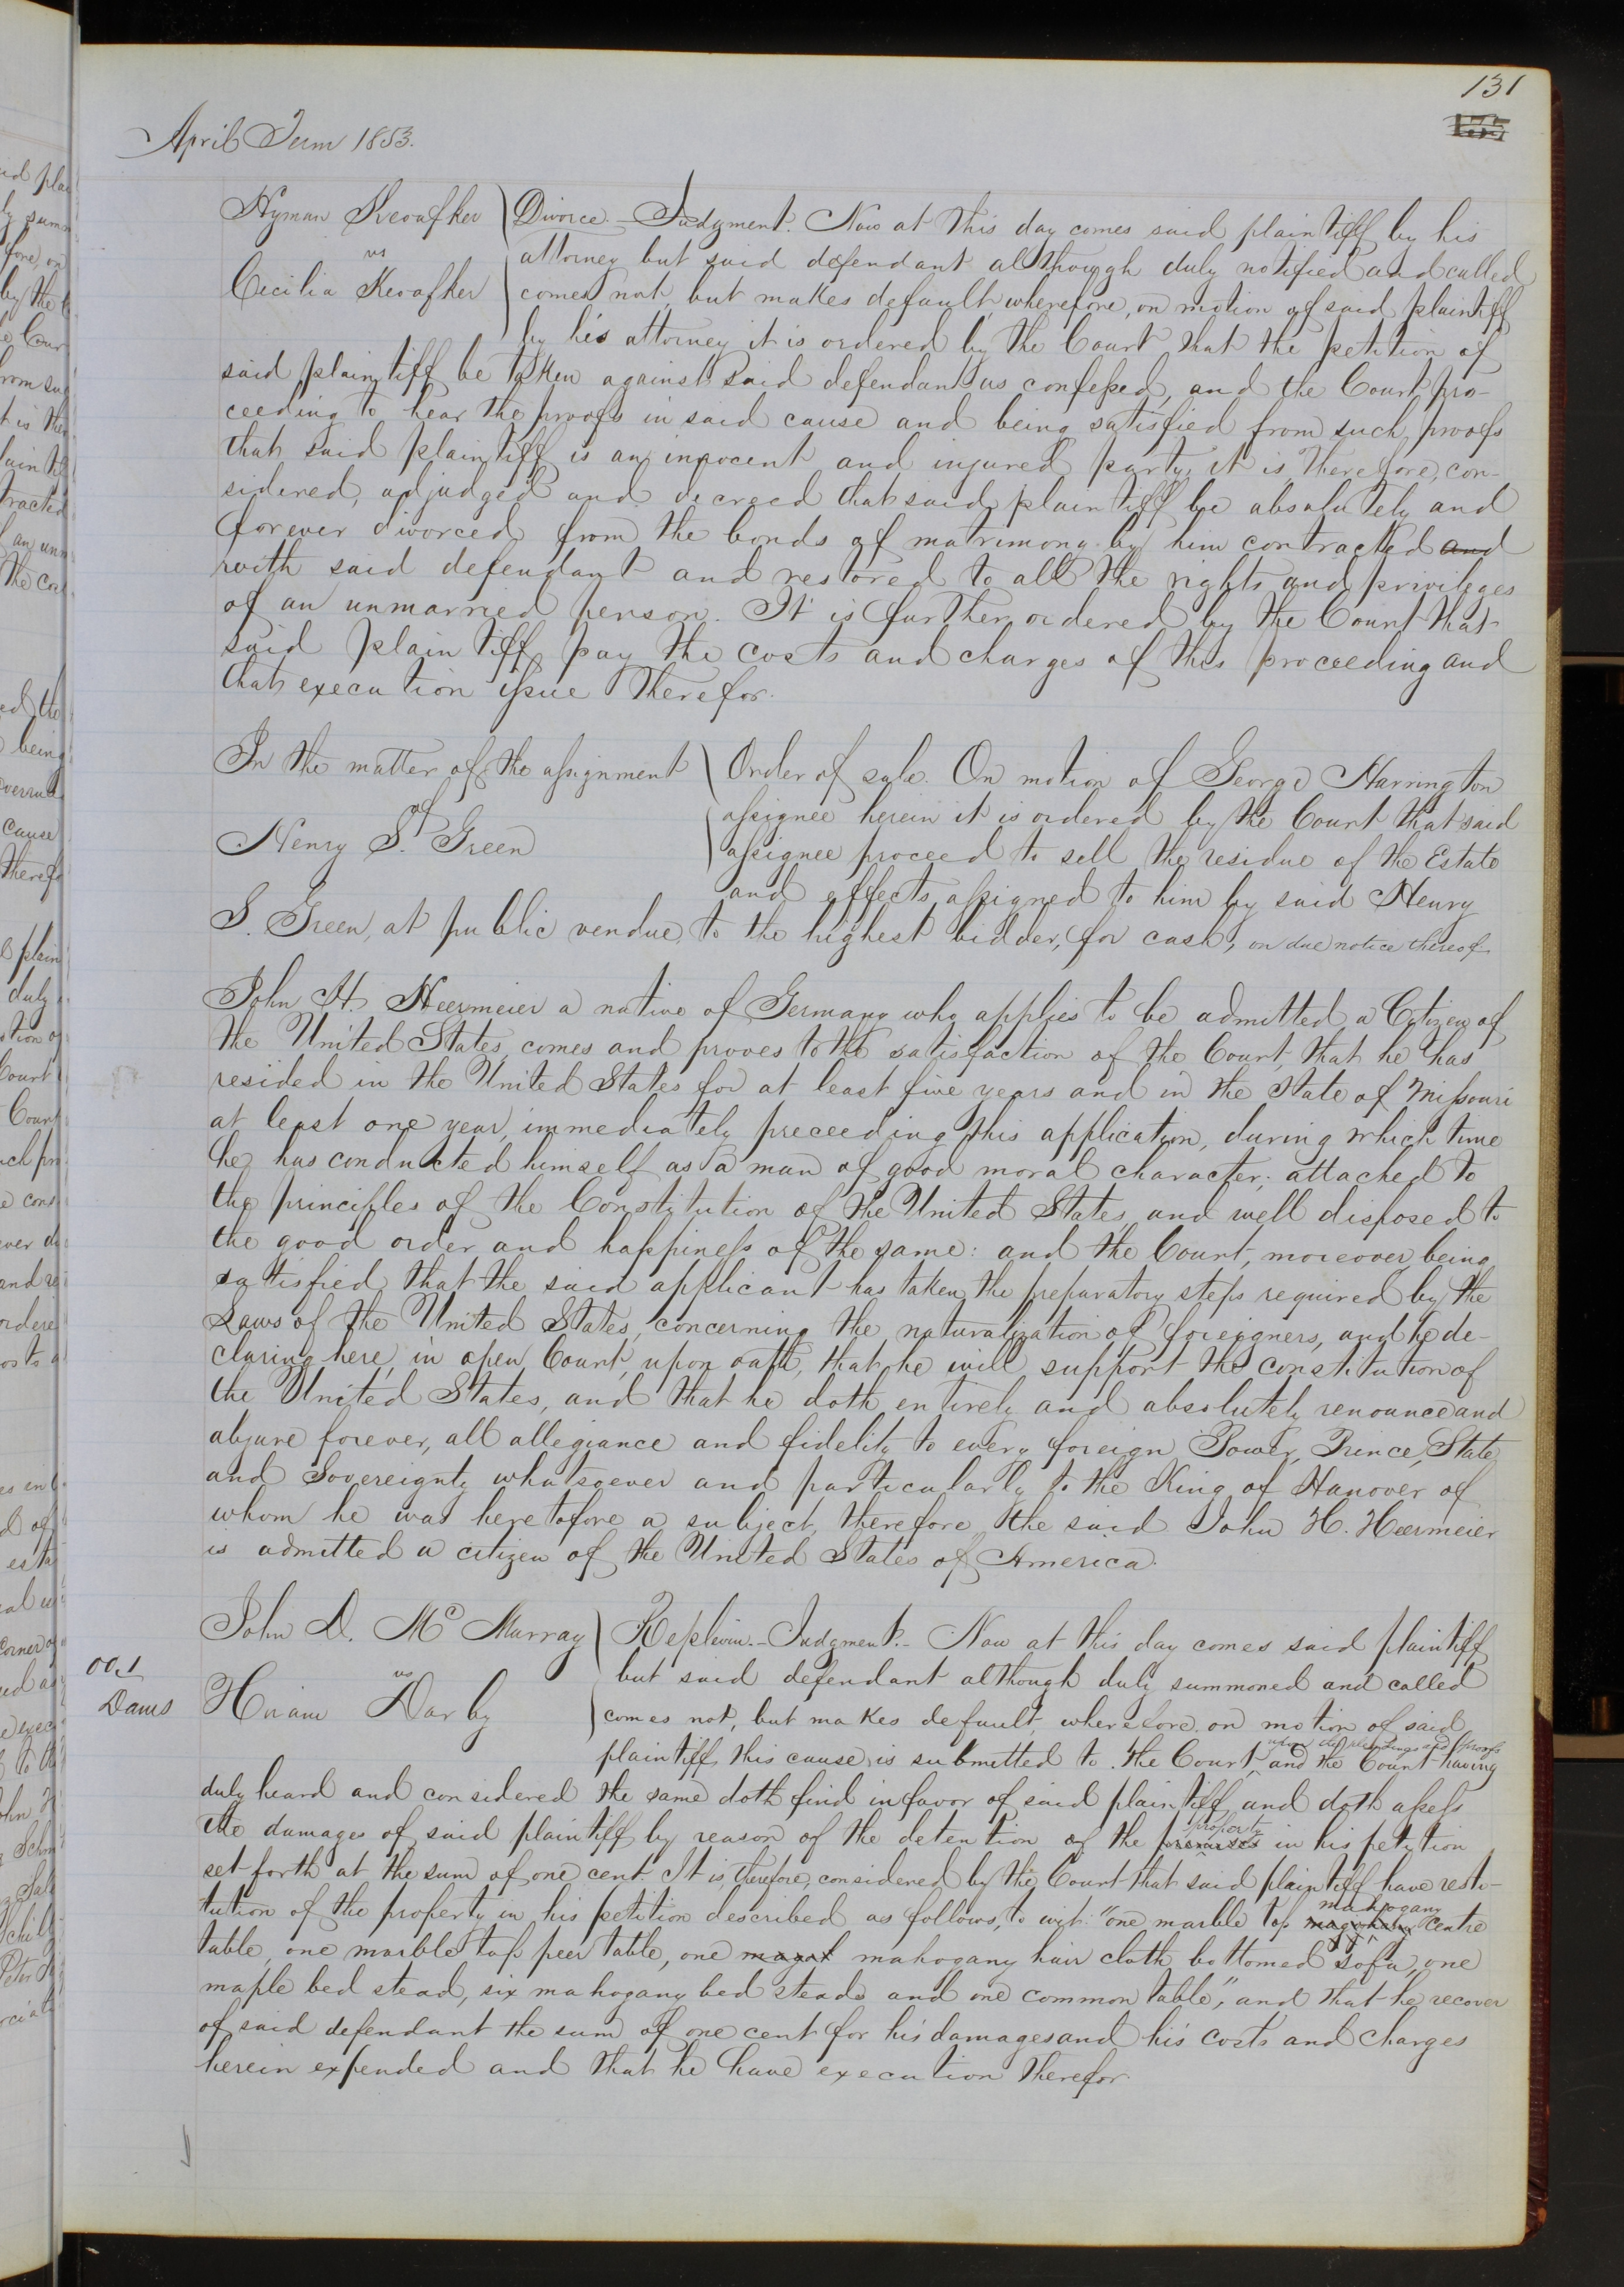 131
April Term 1853.
Hyman Keoafker
vs
Cicilia Keoafker
Divorce. - Judgment. Now at this day comes said plaintiff by his
attorney but said defendant allthough duly notified and called
comes not, but makes default, wherefore, on motion of said plaintiff
by his attorney it is ordered by the Court that the petition of
said plaintiff be taken against said defendant as confessed, and the Court pro-
ceeding to hear the proofs in said cause and being satisfied from such proofs
that said plaintiff is an innocent and injured party, it is, therefore, con-
sidered, adjudged and decreed that said plaintiff be absolutely and
forever divorced from the bonds of matrimony by him contracted and
with said defendant and restored to all the rights and privileges
of an unmarried person. It is further ordered by the Court that
said plaintiff pay the costs and charges of this proceeding and
that execution issue therefor.
In the matter of the assignment
of
Henry S. Green
Order of sale. On motion of George Harrington
assignee herein it is ordered by the Court that said
assignee proceed to sell the residue of the Estate
and effects assigned to him by said Henry
S. Green, at public vendue, to the highest bidder, for cash, on due notice thereof
John H. Heermeier a native of Germany who applies to be admitted a Citizen of
the United States, comes and proves to the satisfaction of the Court, that he has
resided in the United States for at least five years and in the State of Missouri
at least one year, immediately preceeding this application, during which time
he has conducted himself as a man of good moral character; attached to
the principles of the Constitution of the United States, and well disposed to
the good order and happiness of the same: and the Court, moreover, being
satisfied that the said applicant has taken the preparatory steps required by the
Laws of the United States, concerning the naturalization of foreigners, and he de-
claring here, in open Court, upon oath, that he will support the constitution of
the United States, and that he doth entirely and absolutely renounce and
abjure forever, all allegiance and fidelity to every foreign Power, Prince, State,
and Sovereignty whatsoever and particularly to the King of Hanover of
whom he was heretofore a subject, therefore the said John H. Heermeier
is admitted a citizen of the United States of America.
John D. McMurray
vs
Hiram Darby
Replevin. - Judgment. - Now at this day comes said plaintiff
but said defendant although duly summoned and called
comes not, but makes default, wherefore, on motion of said
upon the pleadings and proofs
plaintiff this cause is submitted to the Court, and the Court having
Daws
duly heard and considered the same doth find in favor of said plaintiff and doth assess
property
the damages of said plaintiff by reason of the detention of the premises in his petition
set forth at the sum of one cent. It is, therefore, considered by the Court that said plaintiff have resti-
mahogany
tution of the property in his petition described as follows, to wit: "one marble top centre
table, one marble top peer table, one mahogany hair cloth bottomed sofa, one
maple bed stead, six mahogany bed steads and one common table", and that he recover
of said defendant the sum of one cent for his damages and his costs and charges
herein expended and that he have execution therefor.